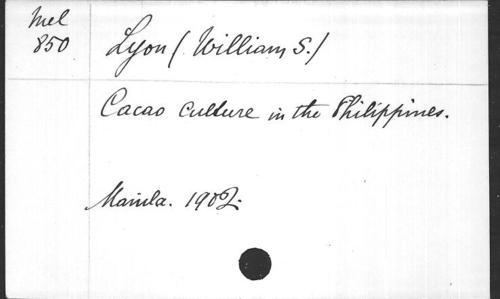 Mel
850
Lyon (William S.)
Cacao culture in the Philippines.
Manila. 1902.